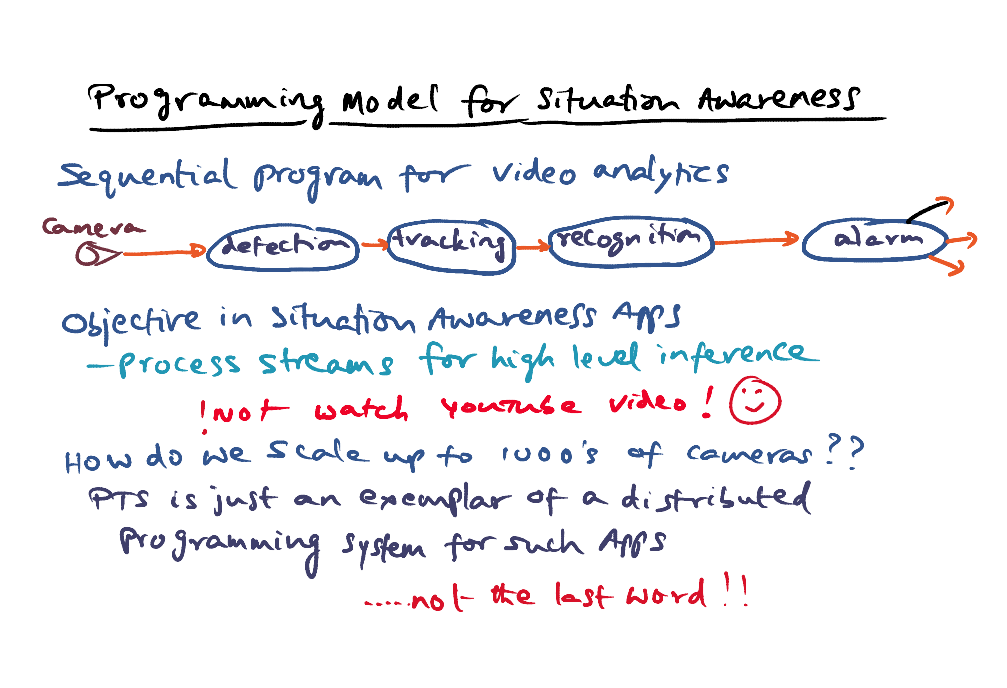 Programming Model for Situation Awareness
Sequential program for video analytics
Camera
detection tracking recognition alarm
Objective in Situation Awareness Apps
– Process streams for high level inference
! not watch YouTube video !
How do we scale up to 1000's of cameras ??
PTS is just an exemplar of a distributed
Programming system for such Apps
.....not the last word !!